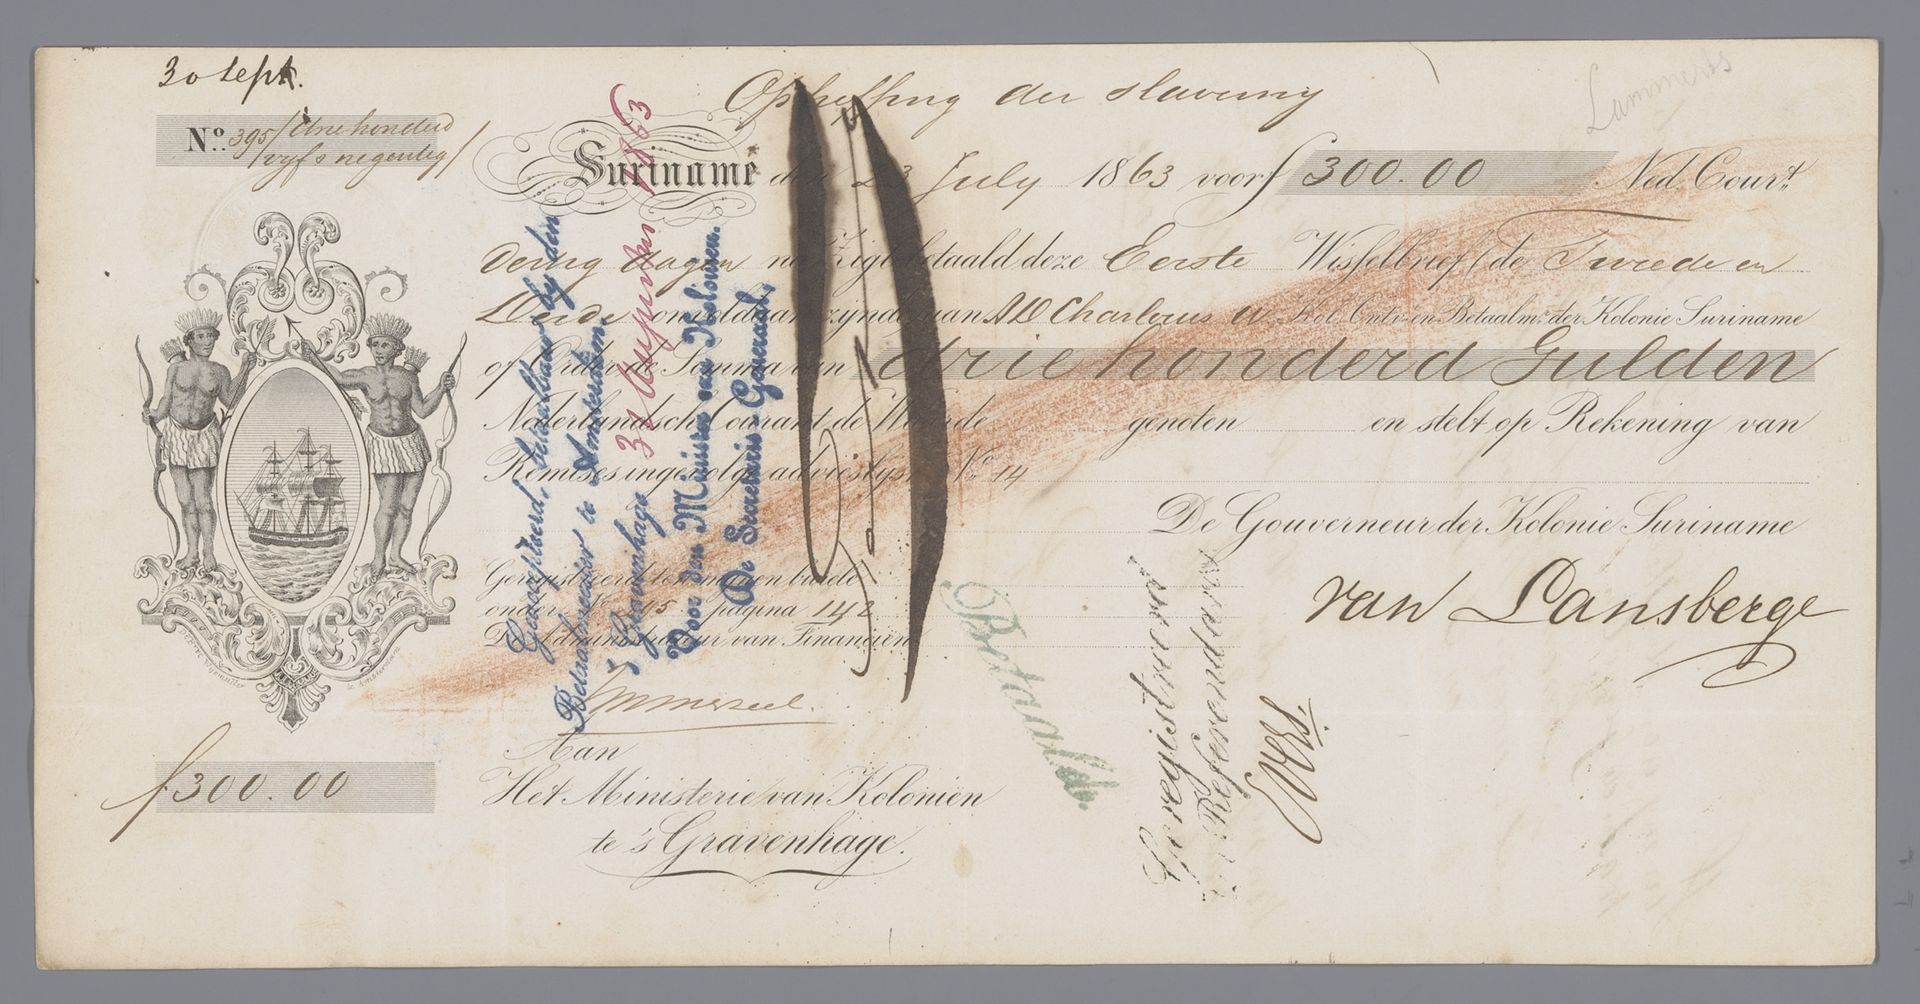 30 Sept.
Opheffing der slaverny
Lammerts
No. 395/drie honderd
vyf & negentig/
Suriname den 23 July 1863 voor f 300.00 Ned. Cour.t
dertig dagen na Zigt betaald deze Eerste Wisselbrief (de Tweede en
Derde onvoldaan zijnde) aan Kol. Ontv. en Betaalm.r der Kolonie Suriname
of Order de Somma van drie honderd Gulden
Nederlandsch Courant de Waarde genoten en stelt op Rekening van
Remises ingevolge advieslyst No. 14
De Gouverneur der Kolonie Suriname
van Lansberge
Geregistreerd ten mynen burele
onder No. 395 pagina 142
De Administrateur van Financiën
Aan
Het Ministerie van Koloniën
te 's Gravenhage.
f 300.00
Geaccepteerd, betaalbaar by den
Betaalmeester te Amsterdam.
's Gravenhage 31 Augustus 1863
Voor den Minister van Koloniën.
De Secretaris Generaal,
Betaald.
Geregistreerd
De Referendaris
Evers.